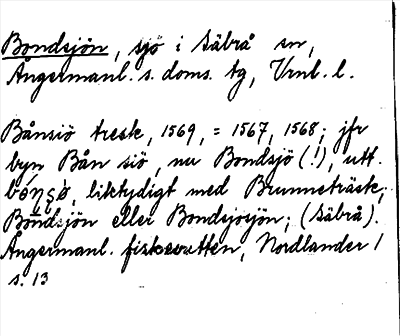 Bondsjön, sjö i Säbrå sn,
Ångermanl. s. doms. tg, Vrnl. l.
Bånsiö tresk, 1569, = 1567, 1568; jfr
byn Bån siö, nu Bondsjö (!), utt.
liktydigt med Brunneträsk;
Bondsjön eller Bondsjösjön; (Säbrå).
Ångermanl. fiskevatten, Nordlander 1
s. 13